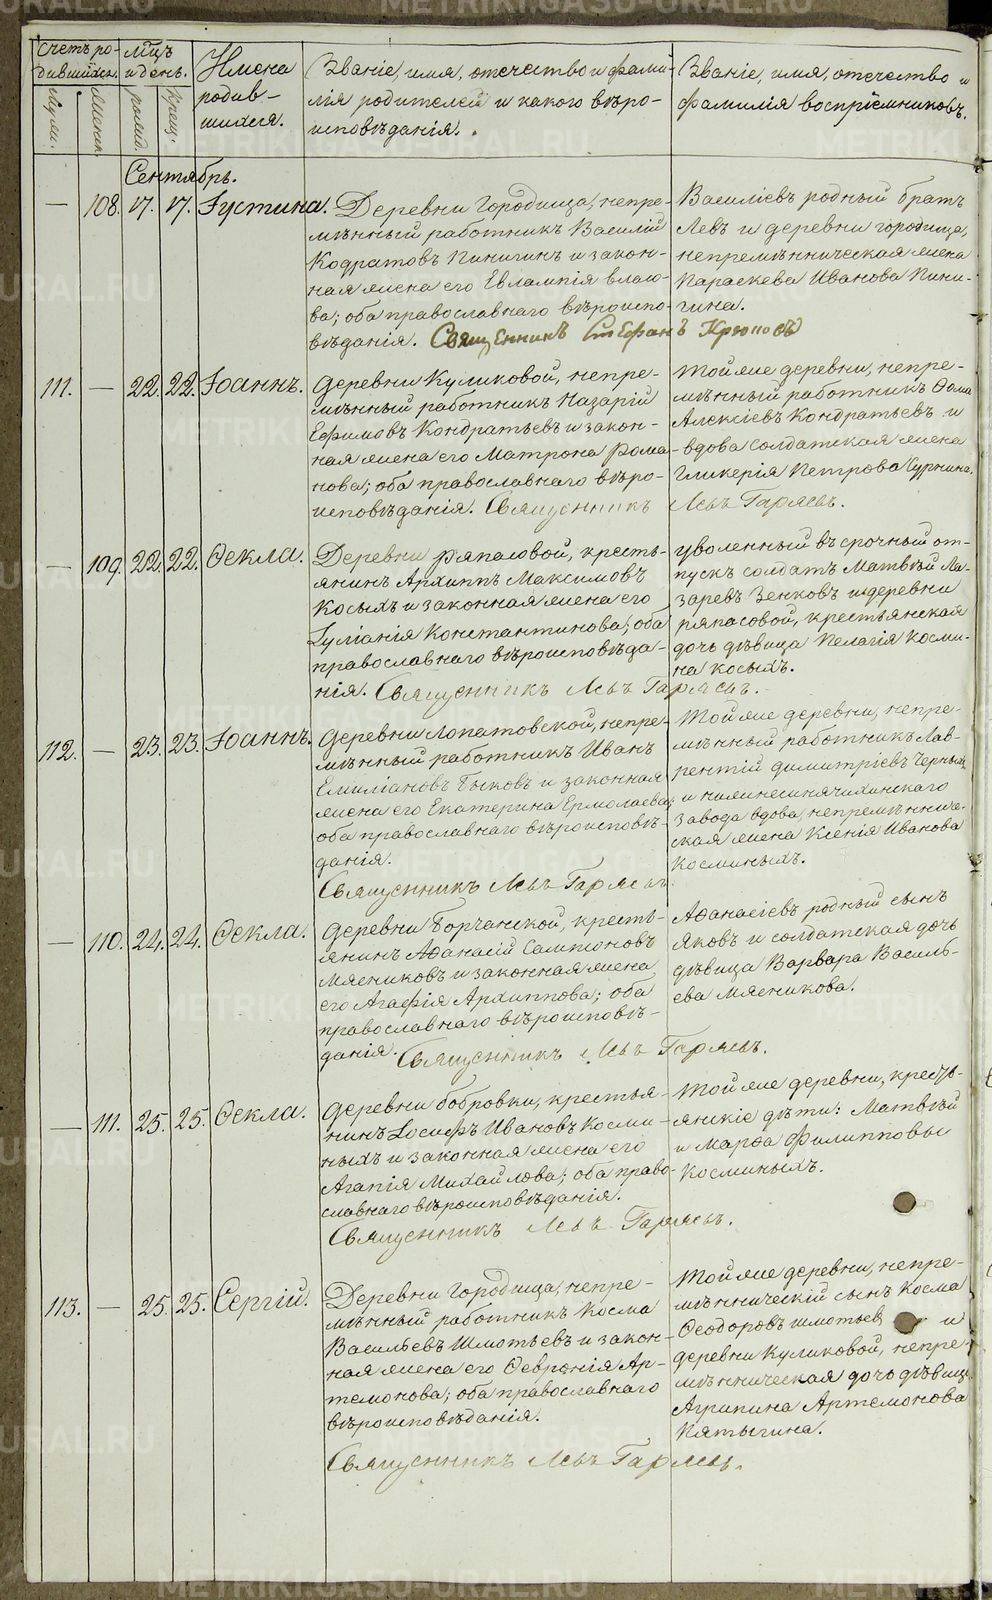 Счетъ ро-
дившихся.
Муж.
Женск.
Мѣц҃ъ
и день.
рожд.
Крещ.
Имена
родив-
шихся.
Званіе, имя, отечество и фами-
лія родителей и какого вѣро-
исповѣданія.
Званіе, имя, отечество и
фамилія воспріемниковъ.
Сентябрь.
— 108. 17. 17. Іустина.
Деревни Городища, непре-
мѣнный работникъ Василій
Кодратовъ Пинигинъ и закон-
ная жена его Евлампія
ва; оба православнаго вѣроиспо-
вѣданія. Священникъ Стефанъ
Васильевъ родный братъ
Левъ и деревни городища,
непремѣнническая жена
Параскева Иванова Пини-
гина.
111. — 22. 22. Іоаннъ.
Деревни Куликовой, непре-
мѣнный работникъ Назарій
Ефимовъ Кондратьевъ и закон-
ная жена его Матрона Рома-
нова; оба православнаго вѣро-
исповѣданія. Священникъ Левъ Гаряевъ.
Той же деревни, непре-
мѣнный работникъ Ѳома
Алексіевъ Кондратьевъ и
вдова солдатская жена
Гликерія Петрова Сурнина.
— 109. 22. 22. Ѳекла.
Деревни Ряпасовой, кресть-
янинъ Архиппъ Максимовъ
Косыхъ и законная жена его
Іуліанія Константинова; оба
православнаго вѣроисповѣда-
нія. Священникъ Левъ Гаряевъ.
Уволенный въ срочный от-
пускъ солдатъ Матвѣй Ла-
заревъ Зенковъ и деревни
ряпасовой, крестьянская
дочь дѣвица Пелагія Косми-
на Косыхъ.
112. — 23. 23. Іоаннъ.
Деревни Лопатовской, непре-
мѣнный работникъ Иванъ
Емиліановъ Быковъ и законная
жена его Екатерина Ермолаева;
оба православнаго вѣроисповѣ-
данія.
Священникъ Левъ Гаряевъ.
Той же деревни, непре-
мѣнный работникъ Лав-
рентій Димитріевъ Черныхъ
и нижнесинячихинскаго
завода вдова, непремѣнниче-
ская жена Ксенія Иванова
Косминыхъ.
— 110. 24. 24. Ѳекла.
Деревни Борчанской, кресть-
янинъ Аѳанасій Сампсоновъ
Мясниковъ и законная жена
его Агафія Архиппова; оба
православнаго вѣроисповѣ-
данія. Священникъ Левъ Гаряевъ.
Аѳанасіевъ родный сынъ
Яковъ и солдатская дочь
дѣвица Варвара Василь-
ева Мясникова.
— 111. 25. 25. Ѳекла.
Деревни бобровки, крестья-
нинъ Іосифъ Ивановъ Косми-
ныхъ и законная жена его
Агапія Михайлова; оба право-
славнаго вѣроисповѣданія.
Священникъ Левъ Гаряевъ.
Той же деревни, кресть-
янскіе дѣти: Матвѣй
и Марѳа Филипповы
Косминыхъ.
113. — 25. 25. Сергій.
Деревни Городища, непре-
мѣнный работникъ Косма
Васильевъ Шмотьевъ и закон-
ная жена его Ѳевронія Ар-
темонова; оба православнаго
вѣроисповѣданія.
Священникъ Левъ Гаряевъ.
Той же деревни, непре-
мѣнническій сынъ Косма
Ѳеодоровъ Шмотьевъ и
деревни Куликовой, непре-
мѣнническая дочь дѣвица
Агрипина Артемонова
Пятыгина.
METRIKI.GASU-URAL.RU